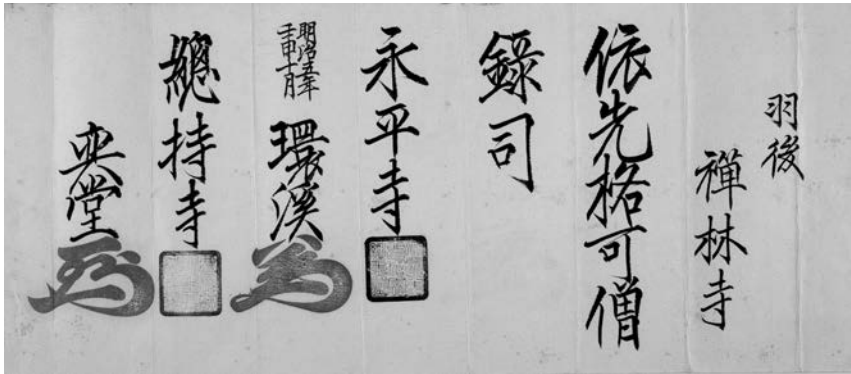 羽後
禅林寺
依先格可僧
録司
永平寺
明治五年
壬申十月
環溪
總持寺
奕堂